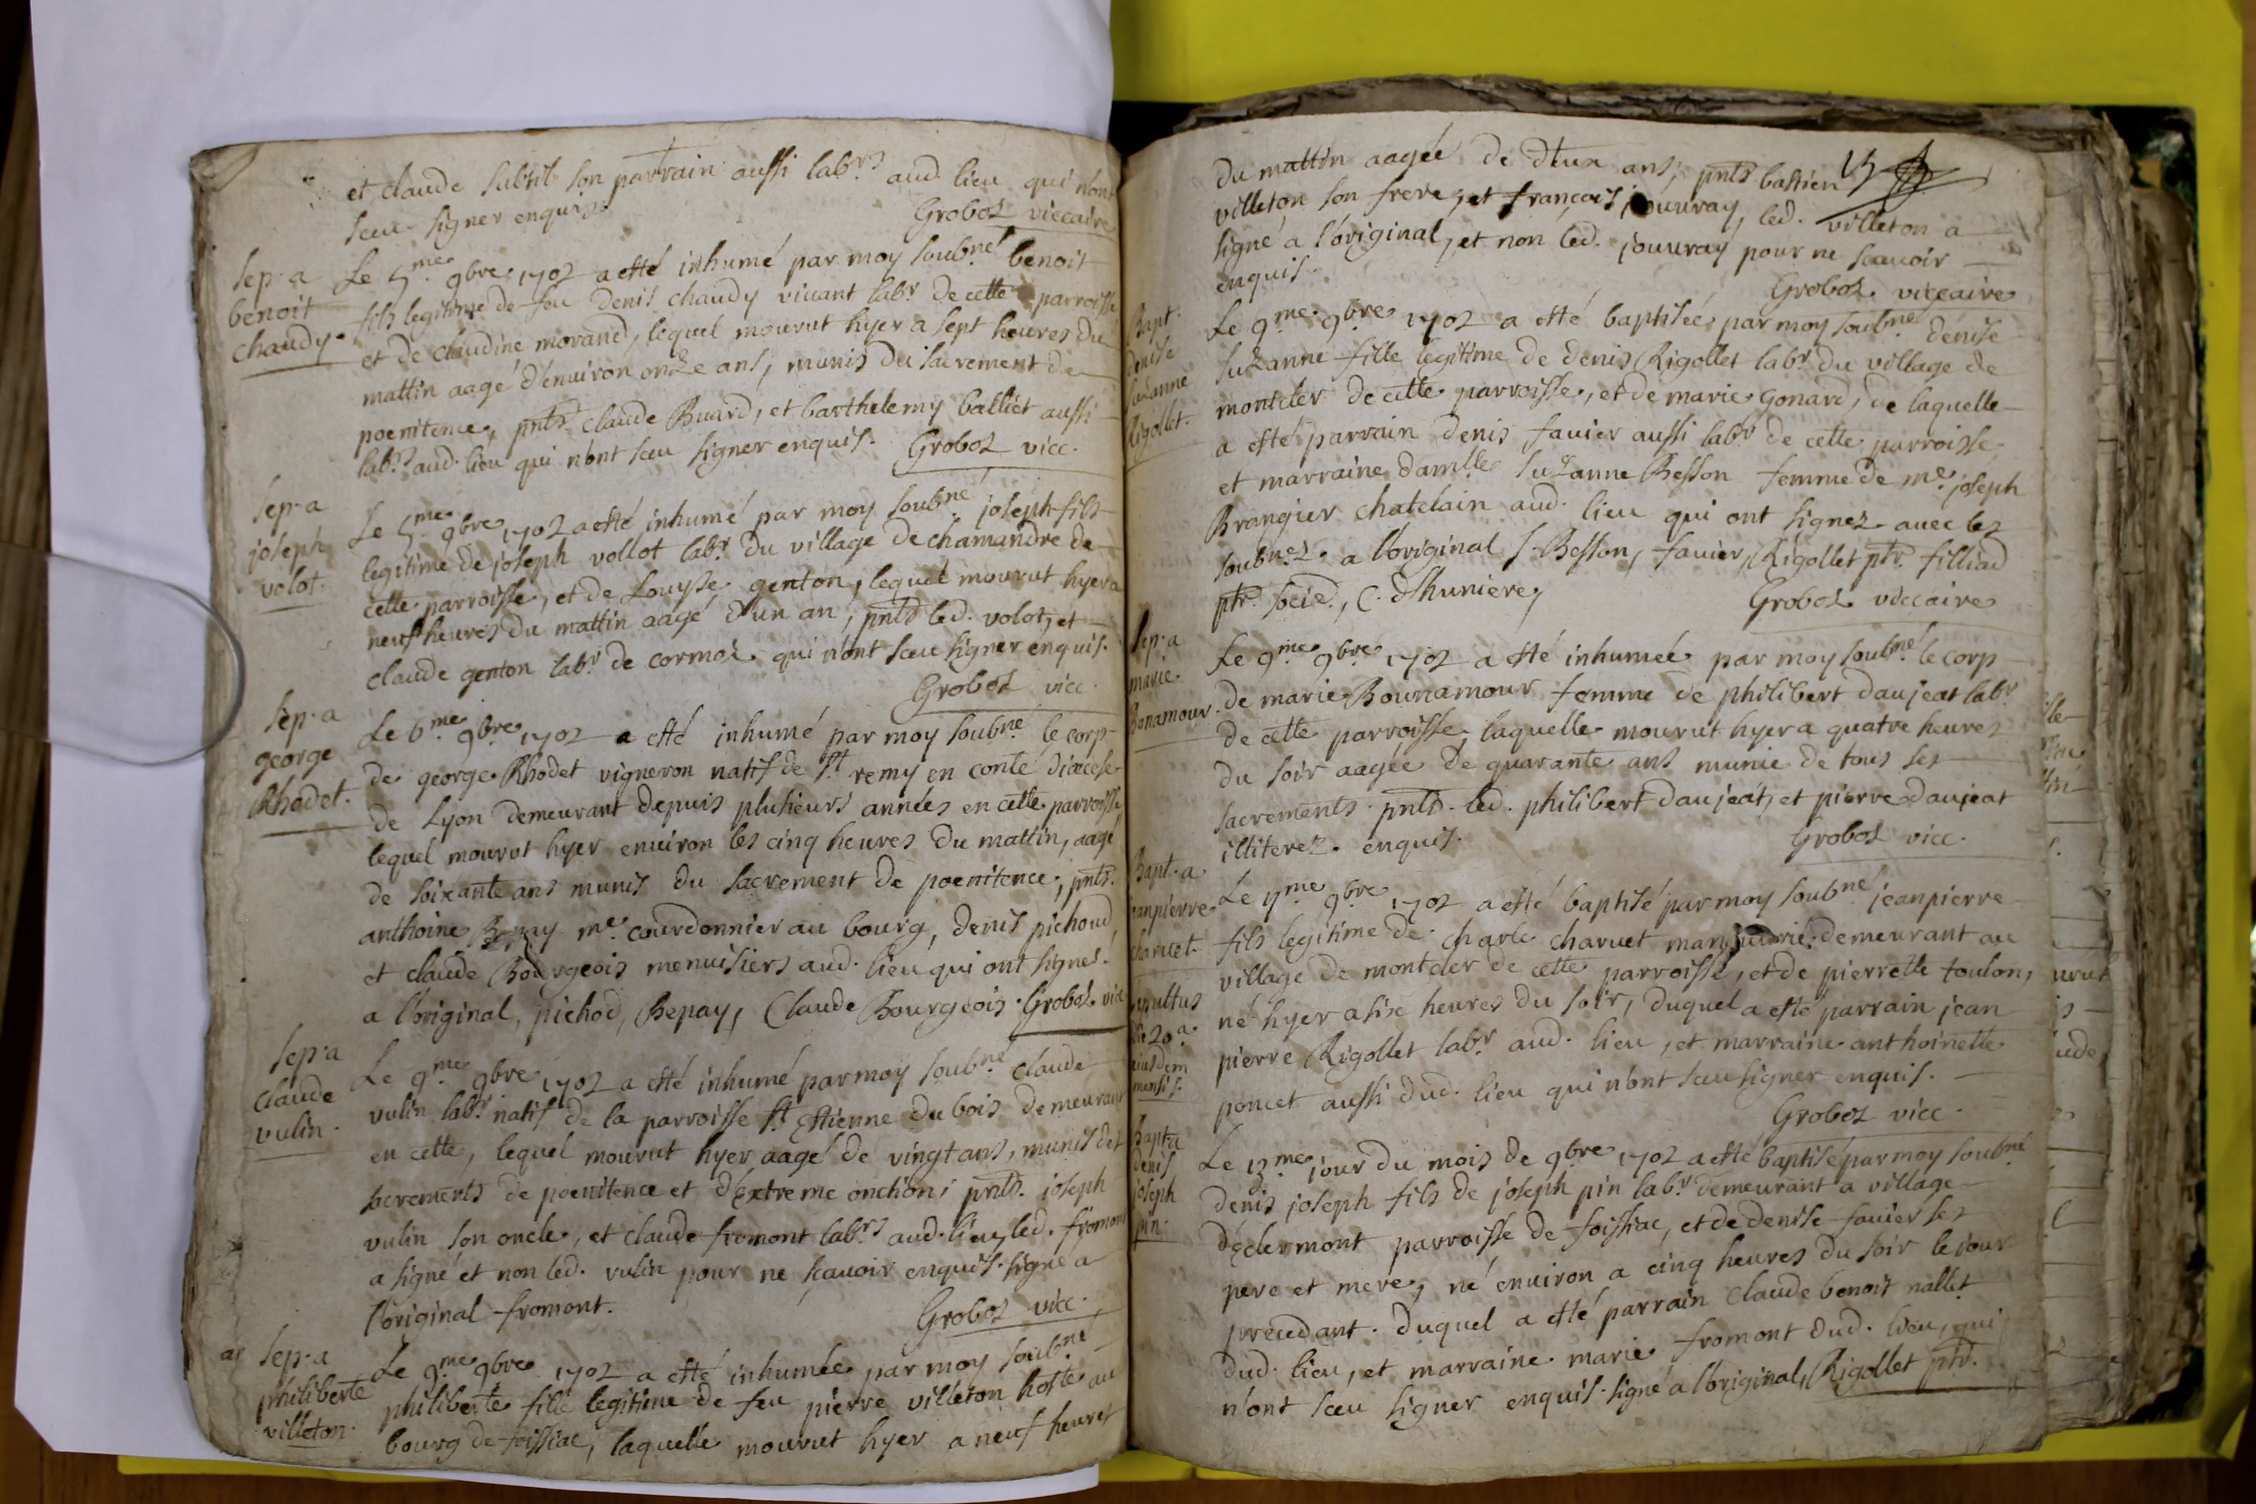 et claude subtil son parrain aussi labrs aud. lieu qui n'ont
sceu signer enquis. Groboz viccaire
sep.a
benoit
chaudy.
Le 5me 9bre 1702 a esté inhumé par moy soubné benoit
fils legitime de feu denis chaudy vivant labr de cette parroisse
et de claudine morand, lequel mourut hyer a sept heures du
mattin aagé d'environ onze ans, munis du sacrement de
poenitence, pnts claude Buard, et barthelemy balliet aussi
labrs aud. lieu qui n'ont sceu signer enquis. Groboz vicc.
sep.a
joseph
volot.
Le 5me 9bre 1702 a esté inhumé par moy soubné joseph fils
legitime de joseph vollot labr du village de chamandre de
cette parroisse, et de Louyse genton, lequel mourut hyer a
neuf heures du mattin aagé d'un an, pnts led. volot, et
claude genton labr de cormoz qui n'ont sceu signer enquis.
Groboz vicc.
sep.a
george
Rhodet.
Le 6me 9bre 1702 a esté inhumé par moy soubné le corp
de george Rhodet vigneron natif de St remy en conté diocese
de Lyon demeurant depuis plusieurs années en cette parroisse
lequel mourut hyer environ les cinq heures du mattin, aagé
de soixante ans munis du sacrement de poenitence, pnts.
anthoine me courdonnier au bourg, denis pichoud,
et claude Bourgeois menuisiers aud. lieu qui ont signes.
a l'original, pichod, Repay, Claude Bourgeois. Groboz vicc
sep.a
claude
vulin.
Le 9me 9bre 1702 a esté inhumé par moy soubné claude
vulin labr natif de la parroisse St Estienne du bois demeurant
en cette, lequel mourut hyer aagé de vingt ans, munis des
sacrements de poenitence et d'Extreme onction; pnts. joseph
vulin son oncle, et claude fromont labrs aud. lieu, led. fromont
a signé et non led. vulin pour ne sçavoir enquis. signé a
l'original fromont. Groboz vicc.
sep.a
philiberte
villeton.
Le 9me 9bre 1702 a esté inhumée par moy soubné
philiberte fille legitime de feu pierre villeton hoste au
bourg de foissiac, laquelle mourut hyer a neuf heures
du mattin aagée de deux ans, pnts bastien
villeton son frere, et françois jouvray, led. villeton a
signé a l'original, et non led. jouvray pour ne scavoir
enquis. Groboz viccaire
Bapt.
denise
suzanne
Rigollet.
Le 9me 9bre 1702 a esté baptisée par moy soubné denise
suzanne fille legitime de denis Rigollet labr du village de
montcler de cette parroisse, et de marie gonard, de laquelle
a esté parrain denis favier aussi labr de cette parroisse
et marraine damlle suzanne Besson femme de me joseph
Brangier chatelain aud. lieu qui ont signez avec les
soubnez. a l'original S Besson, favier, Rigollet ptr. filliad
ptr. socié., C. dhuniere,
Groboz viccaire
sep.a
marie
Bonamour.
Le 9me 9bre 1702 a esté inhumée par moy soubné le corp
de marie Bounamour femme de philibert daujeat labr
de cette parroisse laquelle mourut hyer a quatre heures
du soir aagée de quarante ans munie de tous les
sacrements. pnts. led. philibert daujeat, et pierre daujeat
illiterez. enquis. Groboz vicc.
Bapt.a
jeanpierre
charvet.
sepultus
die 20a
eiusdem
mensis.
Le 9bre 1702 a esté baptisé par moy soubné jeanpierre
fils legitime de charle charvet demeurant au
village de montcler de cette parroisse, et de pierrette toulon,
né hyer a sixe heures du soir, duquel a esté parrain jean
pierre Rigollet labr aud. lieu, et marraine anthoinette
poncet aussi dud. lieu qui n'ont sceu signer enquis.
Groboz vicc.
Bapt.a
denis
joseph
pin.
Le 13me jour du mois de 9bre 1702 a esté baptisé par moy soubné
denis joseph fils de joseph pin labr demeurant a village
declermont parroisse de foissiac, et de denise favier ses
pere et mere, né environ a cinq heures du soir le jour
precedant. duquel a esté parrain claude benoit nallet
dud. lieu, et marraine marie fromont dud. lieu, qui
n'ont sceu signer enquis. signé a l'original, Rigollet ptr.